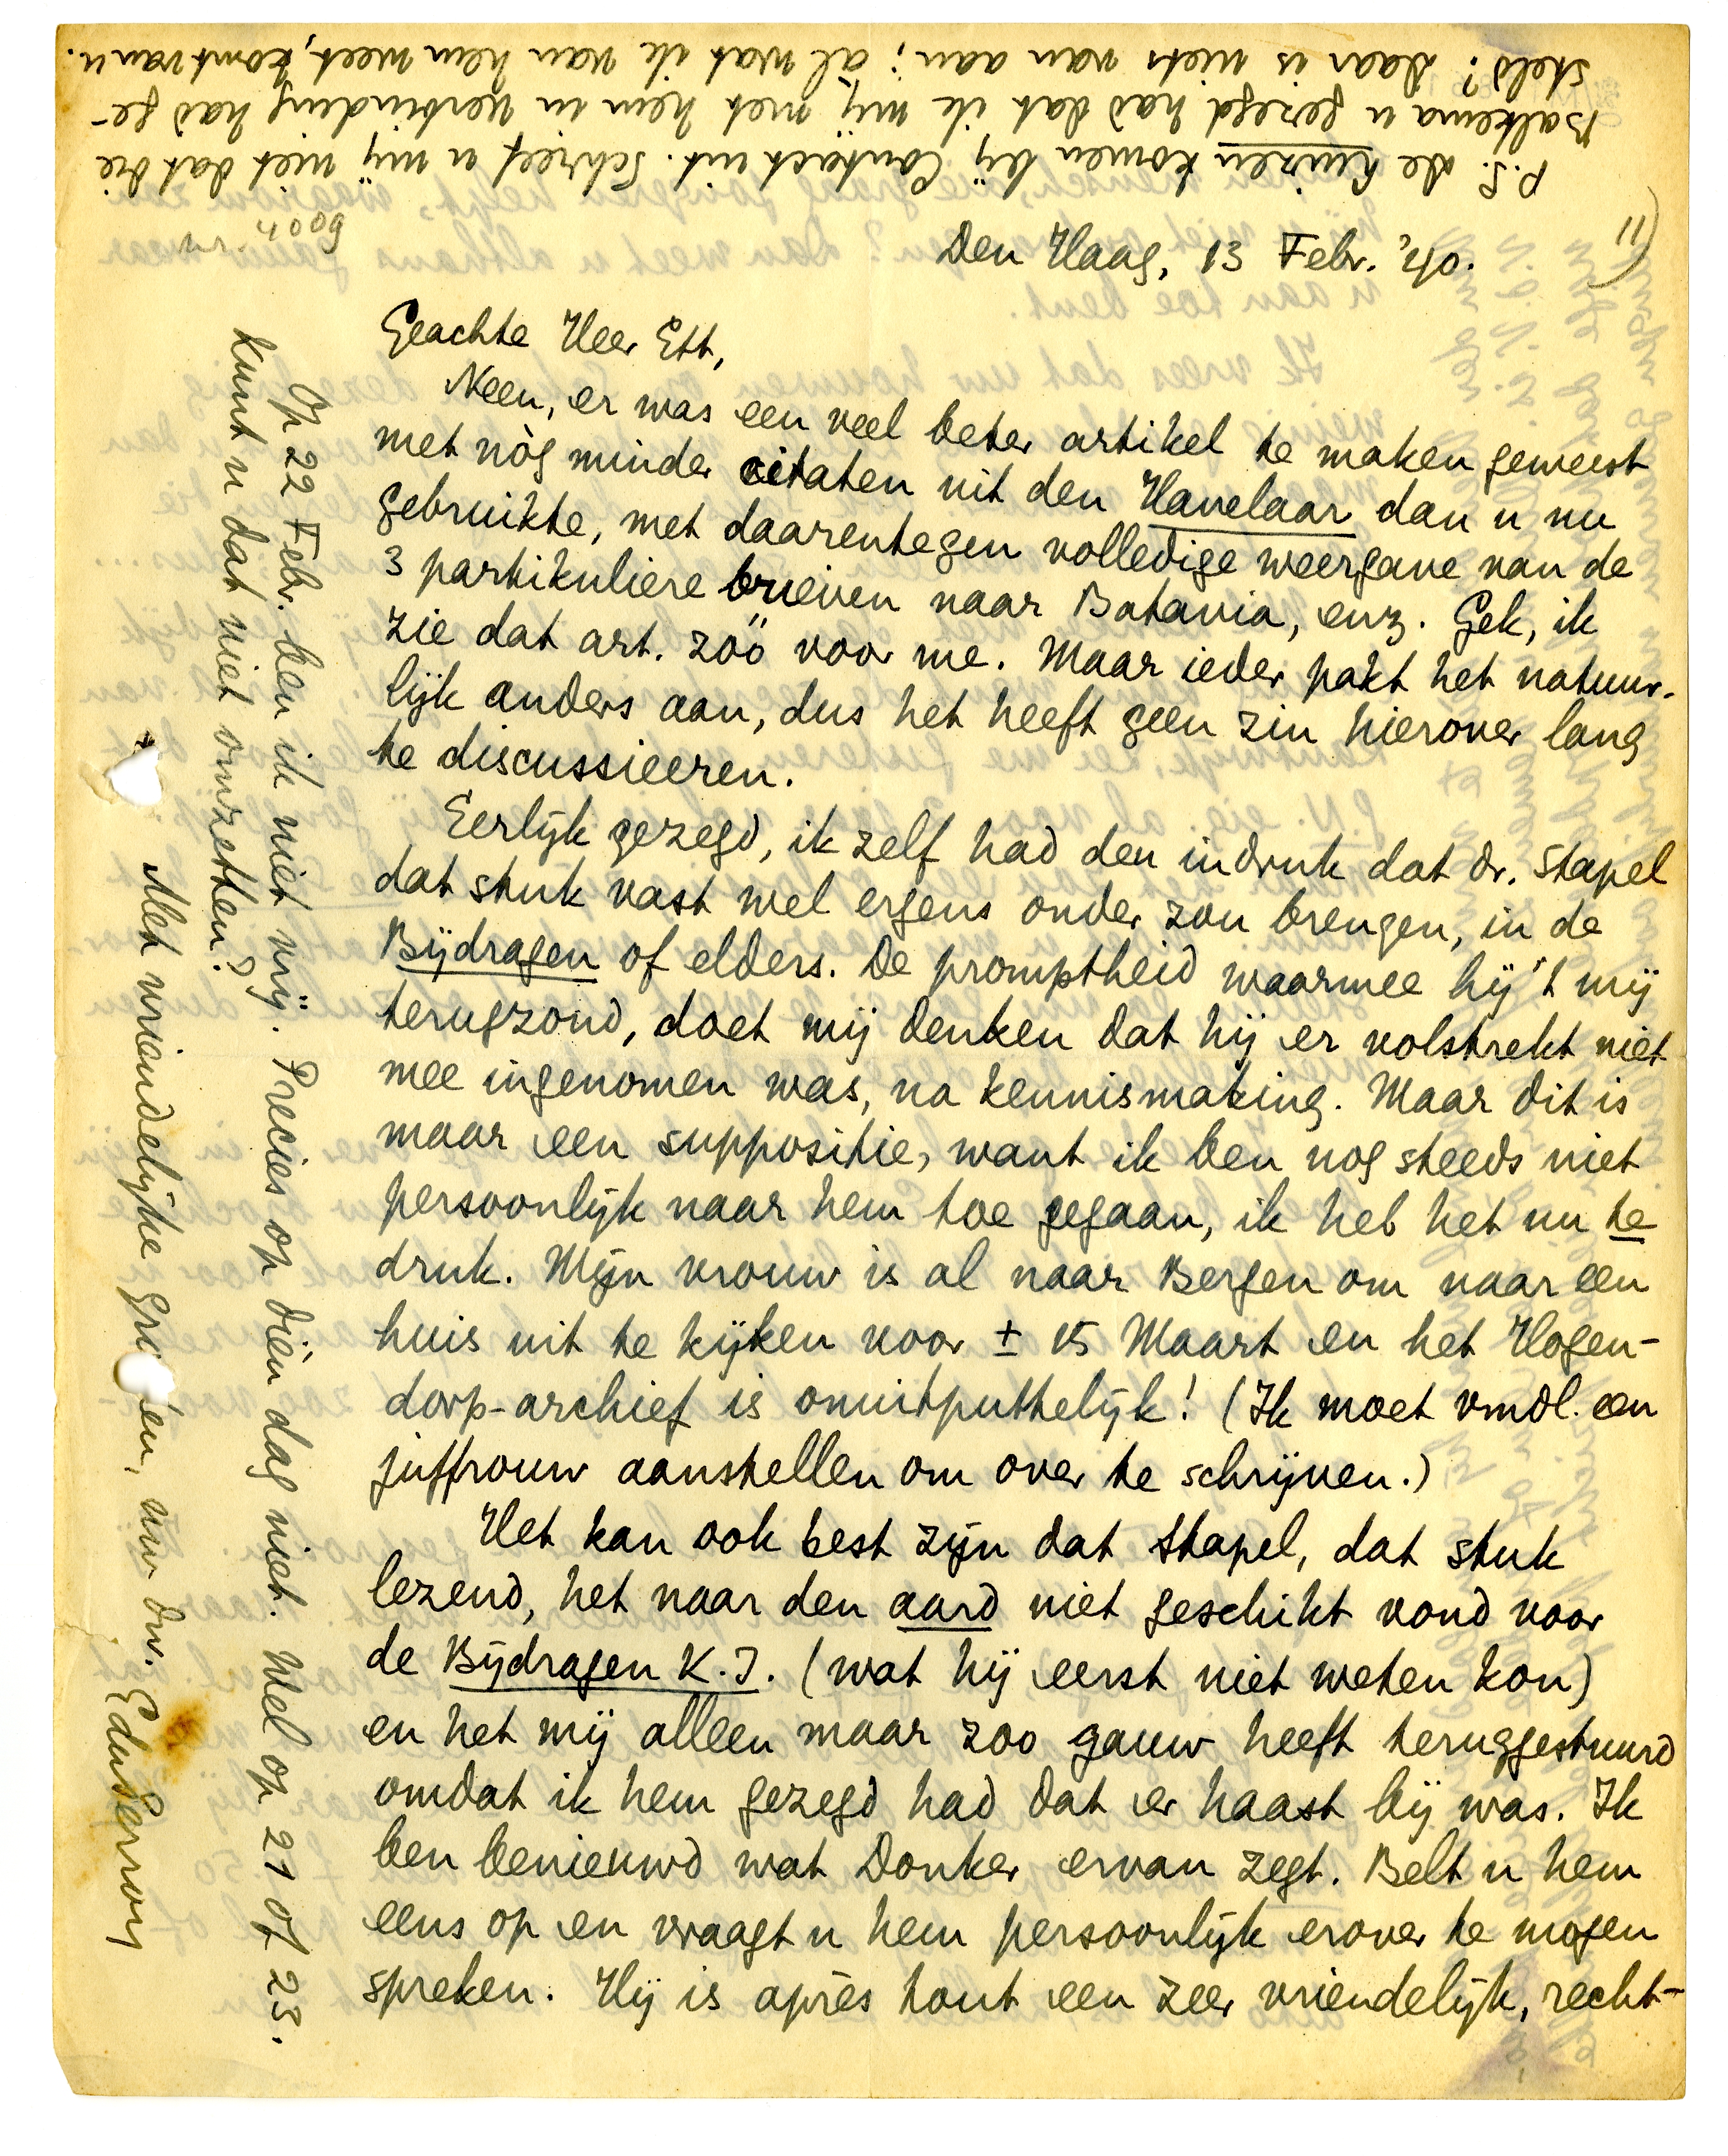 11)
Den Haag, 13 Febr. '40.
Geachte Heer Ett,
Neen, er was een veel beter artikel te maken geweest
met nòg minder citaten uit den Havelaar dan u nu
gebruikte, met daarentegen volledige weergave van de
3 partikuliere brieven naar Batavia, enz. Gek, ik
zie dat art. zóó voor me. Maar ieder pakt het natuur-
lijk anders aan, dus het heeft geen zin hierover lang
te discussieeren.
Eerlijk gezegd, ik zelf had den indruk dat dr. Stapel
dat stuk vast wel ergens onder zou brengen, in de
Bijdragen of elders. De promptheid waarmee hij 't mij
terugzond, doet mij denken dat hij er volstrekt niet
mee ingenomen was, na kennismaking. Maar dit is
maar een suppositie, want ik ben nog steeds niet
persoonlijk naar hem toe gegaan, ik heb het nu te
druk. Mijn vrouw is al naar Bergen om naar een
huis uit te kijken voor ± 15 Maart en het Hogen-
dorp-archief is onuitputtelijk! (Ik moet vmdl. een
juffrouw aanstellen om over te schrijven.)
Het kan ook best zijn dat Stapel, dat stuk
lezend, het naar den aard niet geschikt vond voor
de Bijdragen K.I. (wat hij eerst niet weten kon)
en het mij alleen maar zoo gauw heeft teruggestuurd
omdat ik hem gezegd had dat er haast bij was. Ik
ben benieuwd wat Donker ervan zegt. Belt u hem
eens op en vraagt u hem persoonlijk erover te mogen
spreken. Hij is après tout een zeer vriendelijk, recht-
Op 22 Febr. ben ik niet vrij. Precies op dièn dag niet. Wel op 21 of 23.
Kunt u dat niet omzetten?
Met vriendelijke gro en, uw dw. EduPerron
P.S. De Keuzen komen bij Contact uit. Schreef u mij niet dat die
Balkema u gezegd had dat ik mij met hem in verbinding had ge-
steld? Daar is niets van aan; al wat ik van hem weet, komt van u.